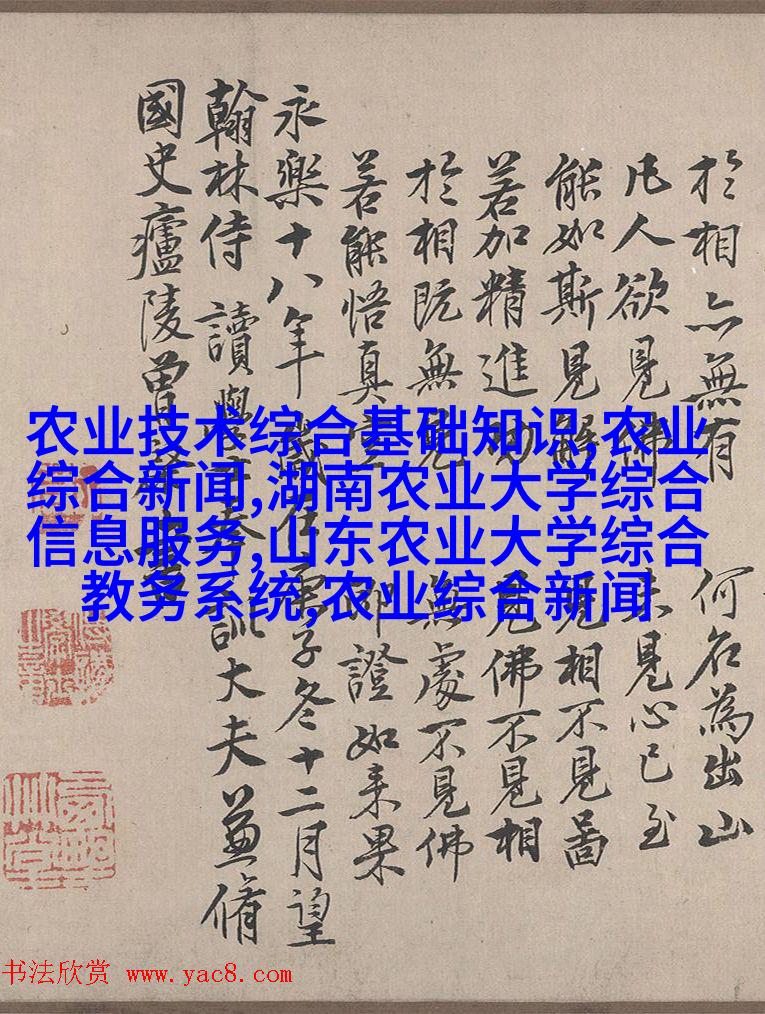 於相亦無有 何名為出山
凡人欲見佛 未見心已至
能如斯見解 見相不見啚
若加精進功 見佛不見相
於相既無見 無處不見佛
若能悟真空 即證如来果
永樂十八年歲在庚子冬十二月望
翰林侍 讀學士奉訓大夫兼脩
國史廬陵曾
农业技术综合基础知识,农业
综合新闻,湖南农业大学综合
信息服务,山东农业大学综合
教务系统,农业综合新闻
书法欣赏 www.yac8.com